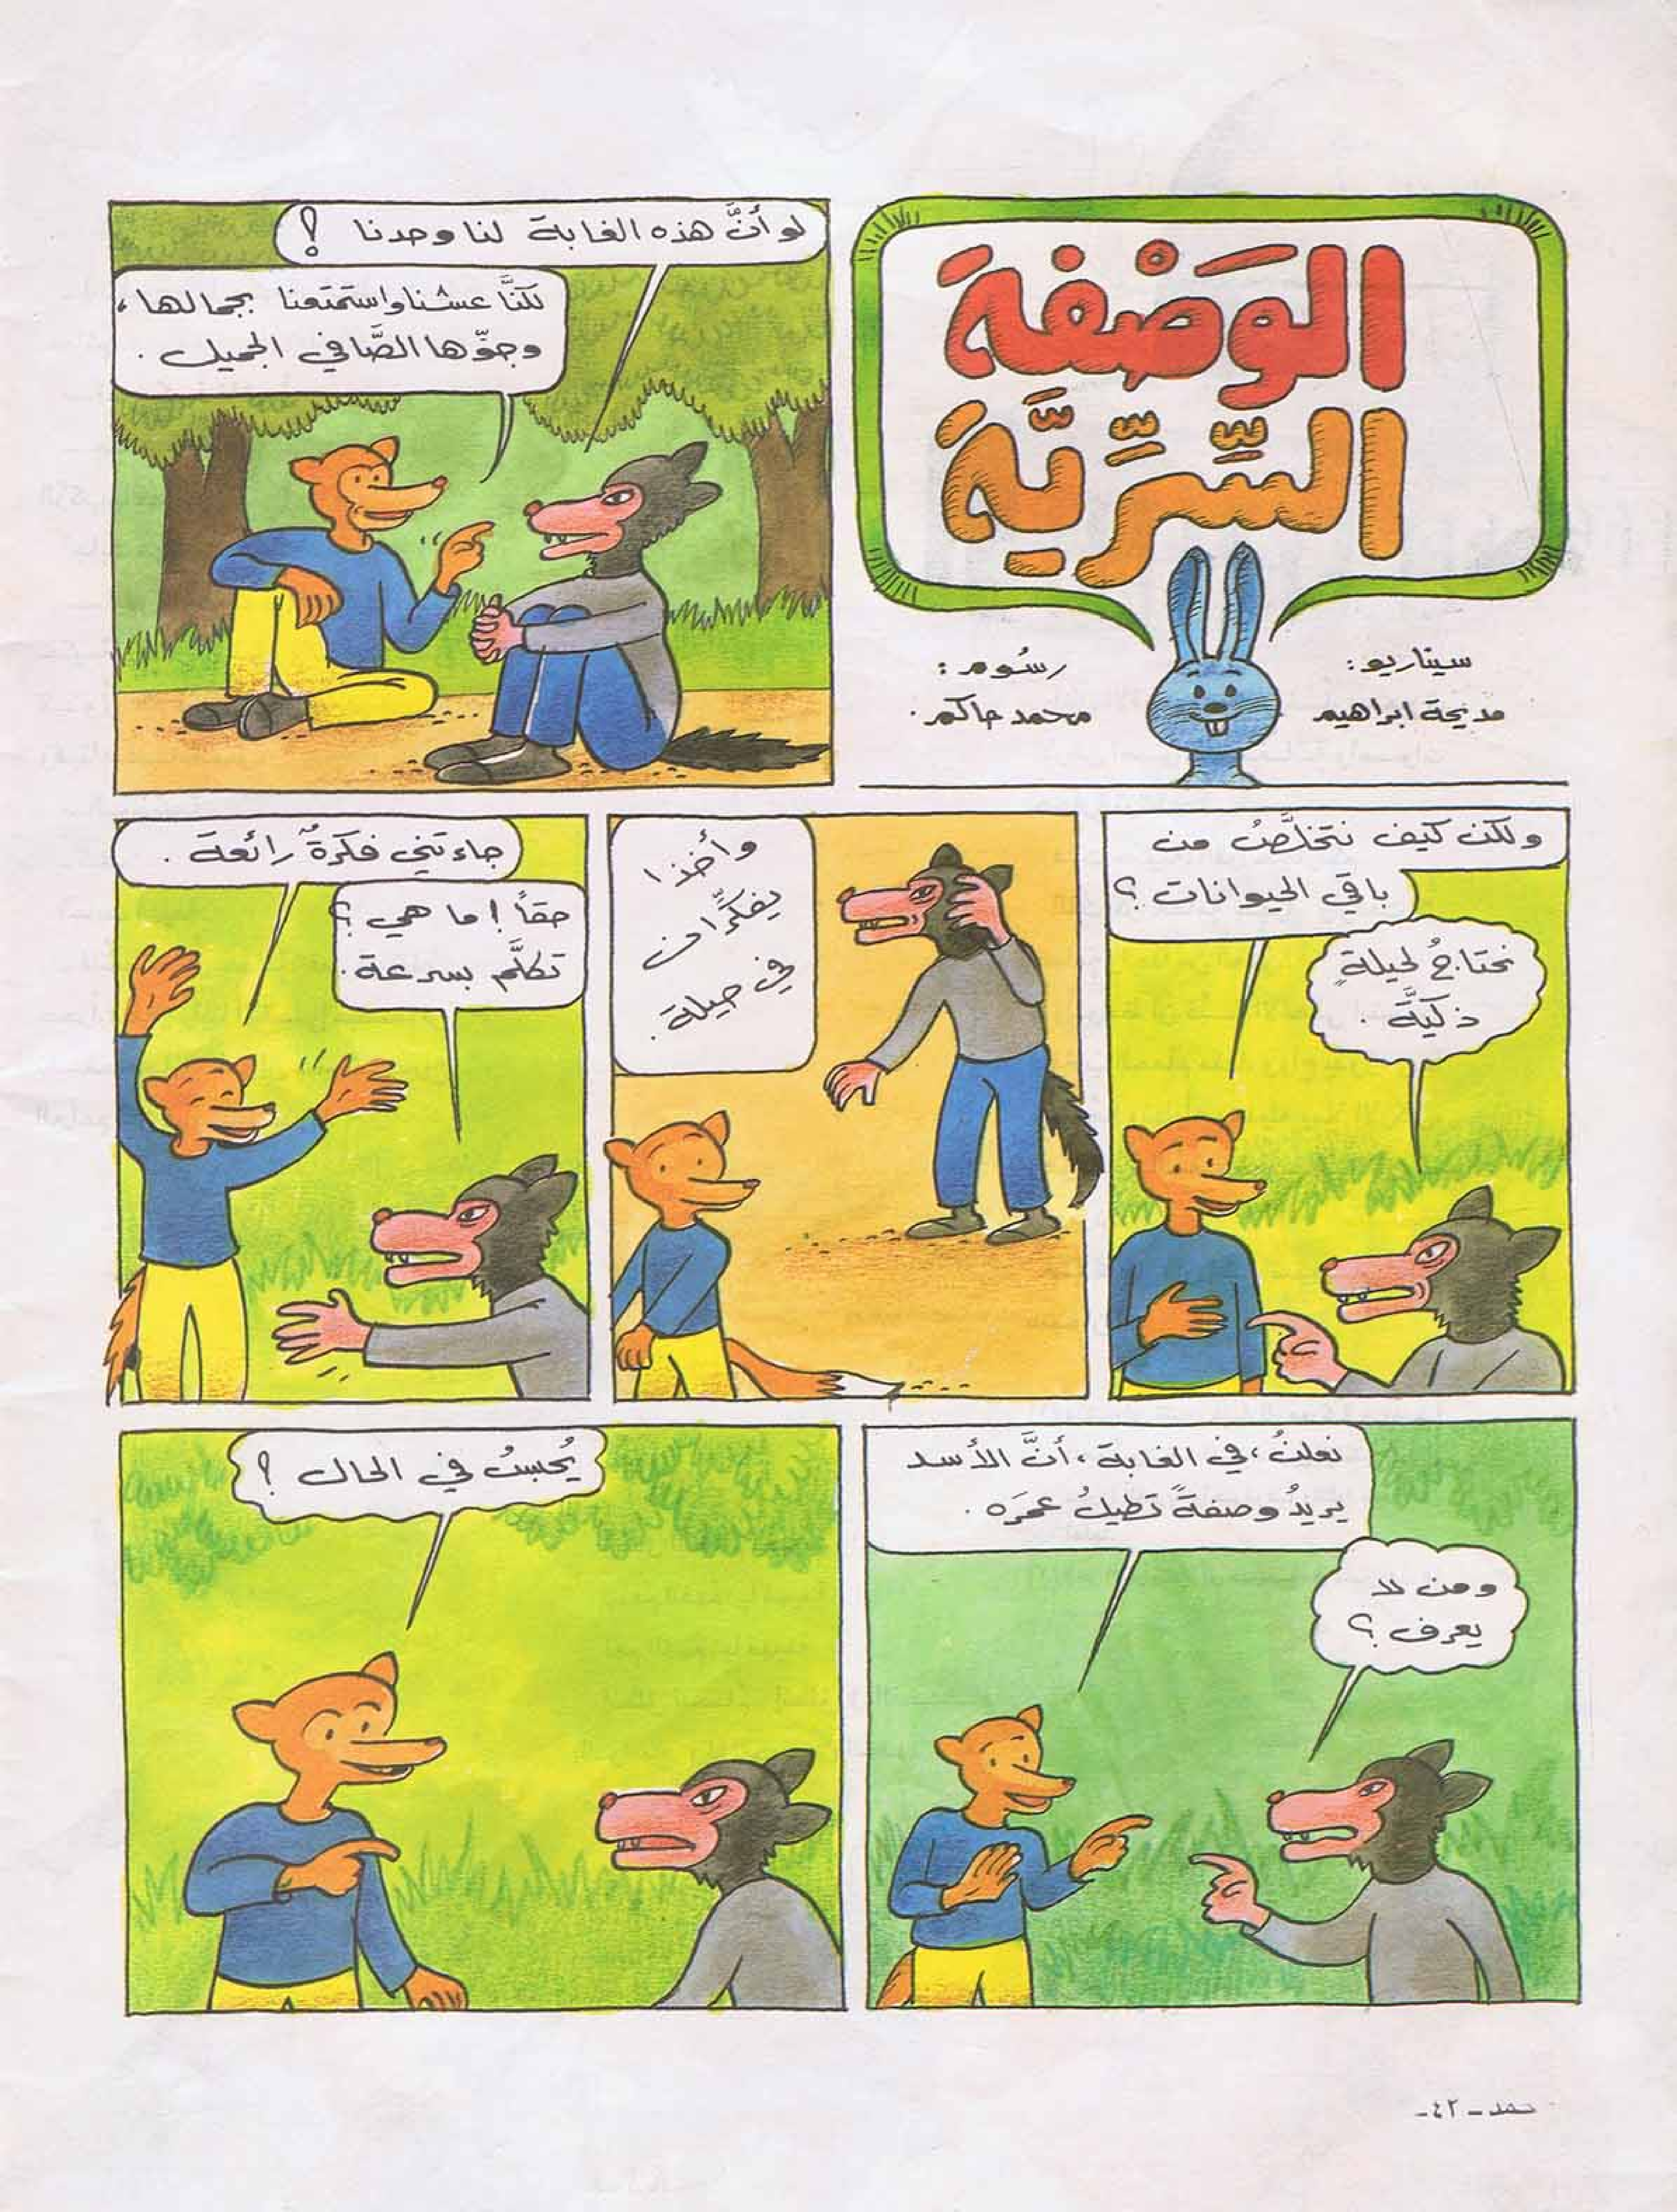 الوَصْفةَ
السِّرِّيَّةَ
سيناريو:
مديحة ابراهيم
رسُوم:
محمد حاكم.
لو أنَّ هذه الغابة لنا وحدنا !
لكنَّا عشنا واستمتعنا بجمالها،
وجوّها الصَّافي الجميل.
ولكن كيف نتخلَّصُ من
باقي الحيوانات؟
نحتاجُ لحيلةٍ
ذكيَّة.
وأخذا
يفكِّران
في حيلة.
جاءتني فكرةٌ رائعة.
حقاً! ما هي؟
تكلَّم بسرعة.
نعلنُ، في الغابة، أنَّ الأسد
يريدُ وصفةً تطيلُ عمرَه.
ومن لا
يعرف؟
يُحبسُ في الحال؟
-٤٢-